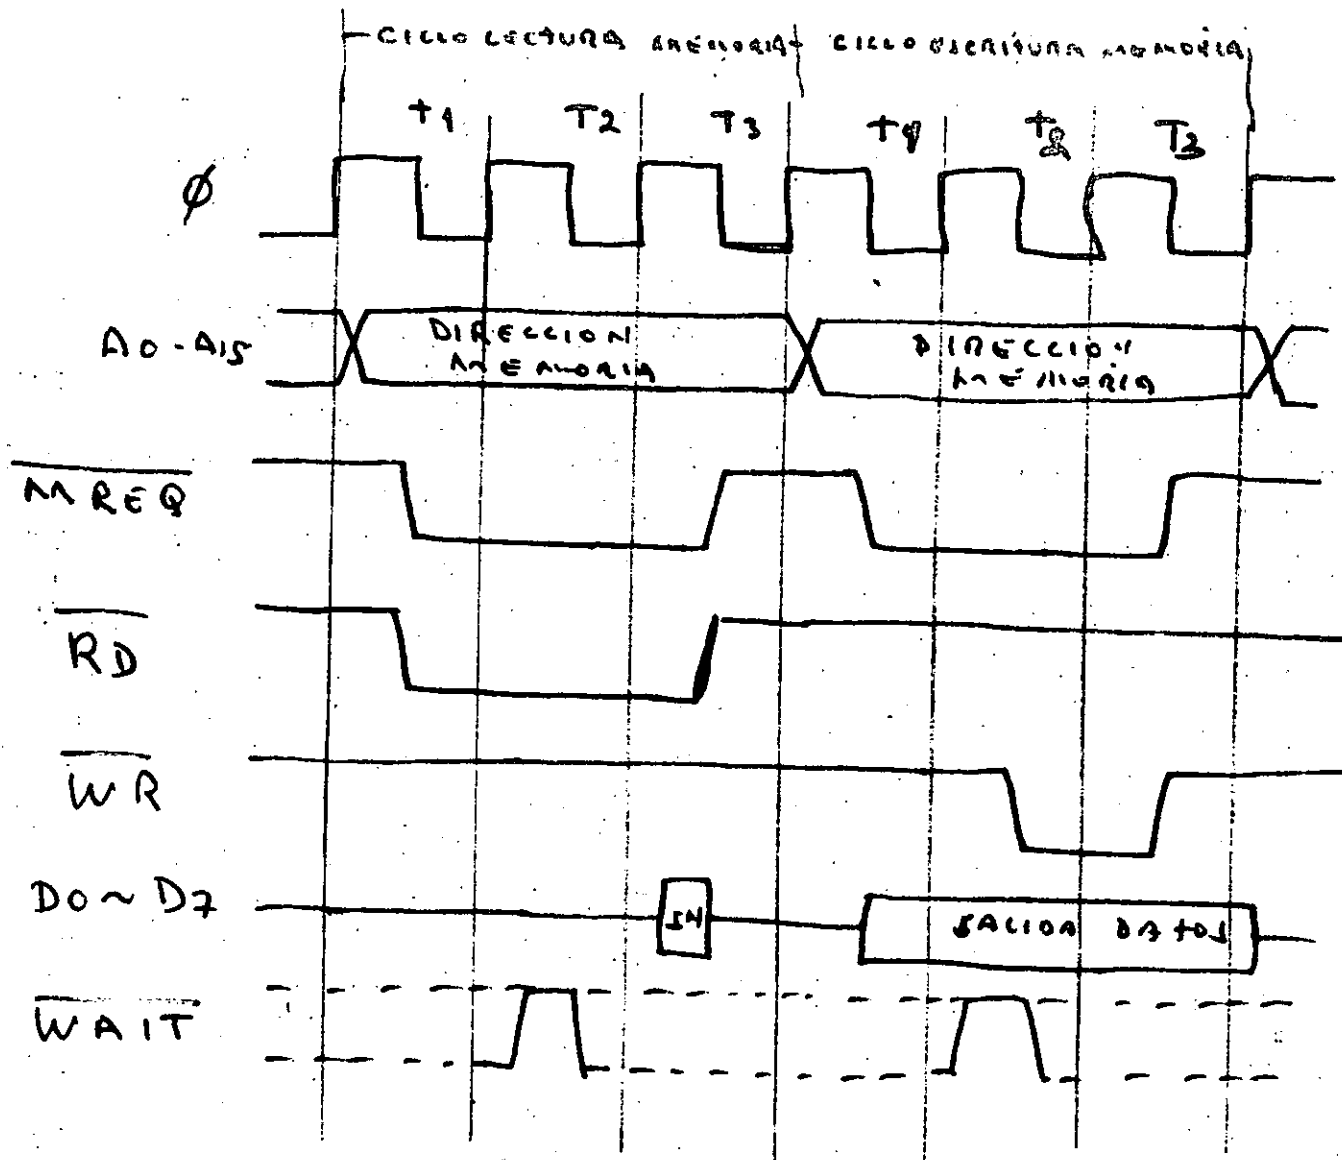 CICLO LECTURA MEMORIA
CICLO ESCRITURA MEMORIA
T1 T2 T3 T1 T2 T3
Ø
A0-A15
DIRECCION
MEMORIA
DIRECCION
MEMORIA
MREQ
RD
WR
D0~D7
IN
SALIDA DATOS
WAIT